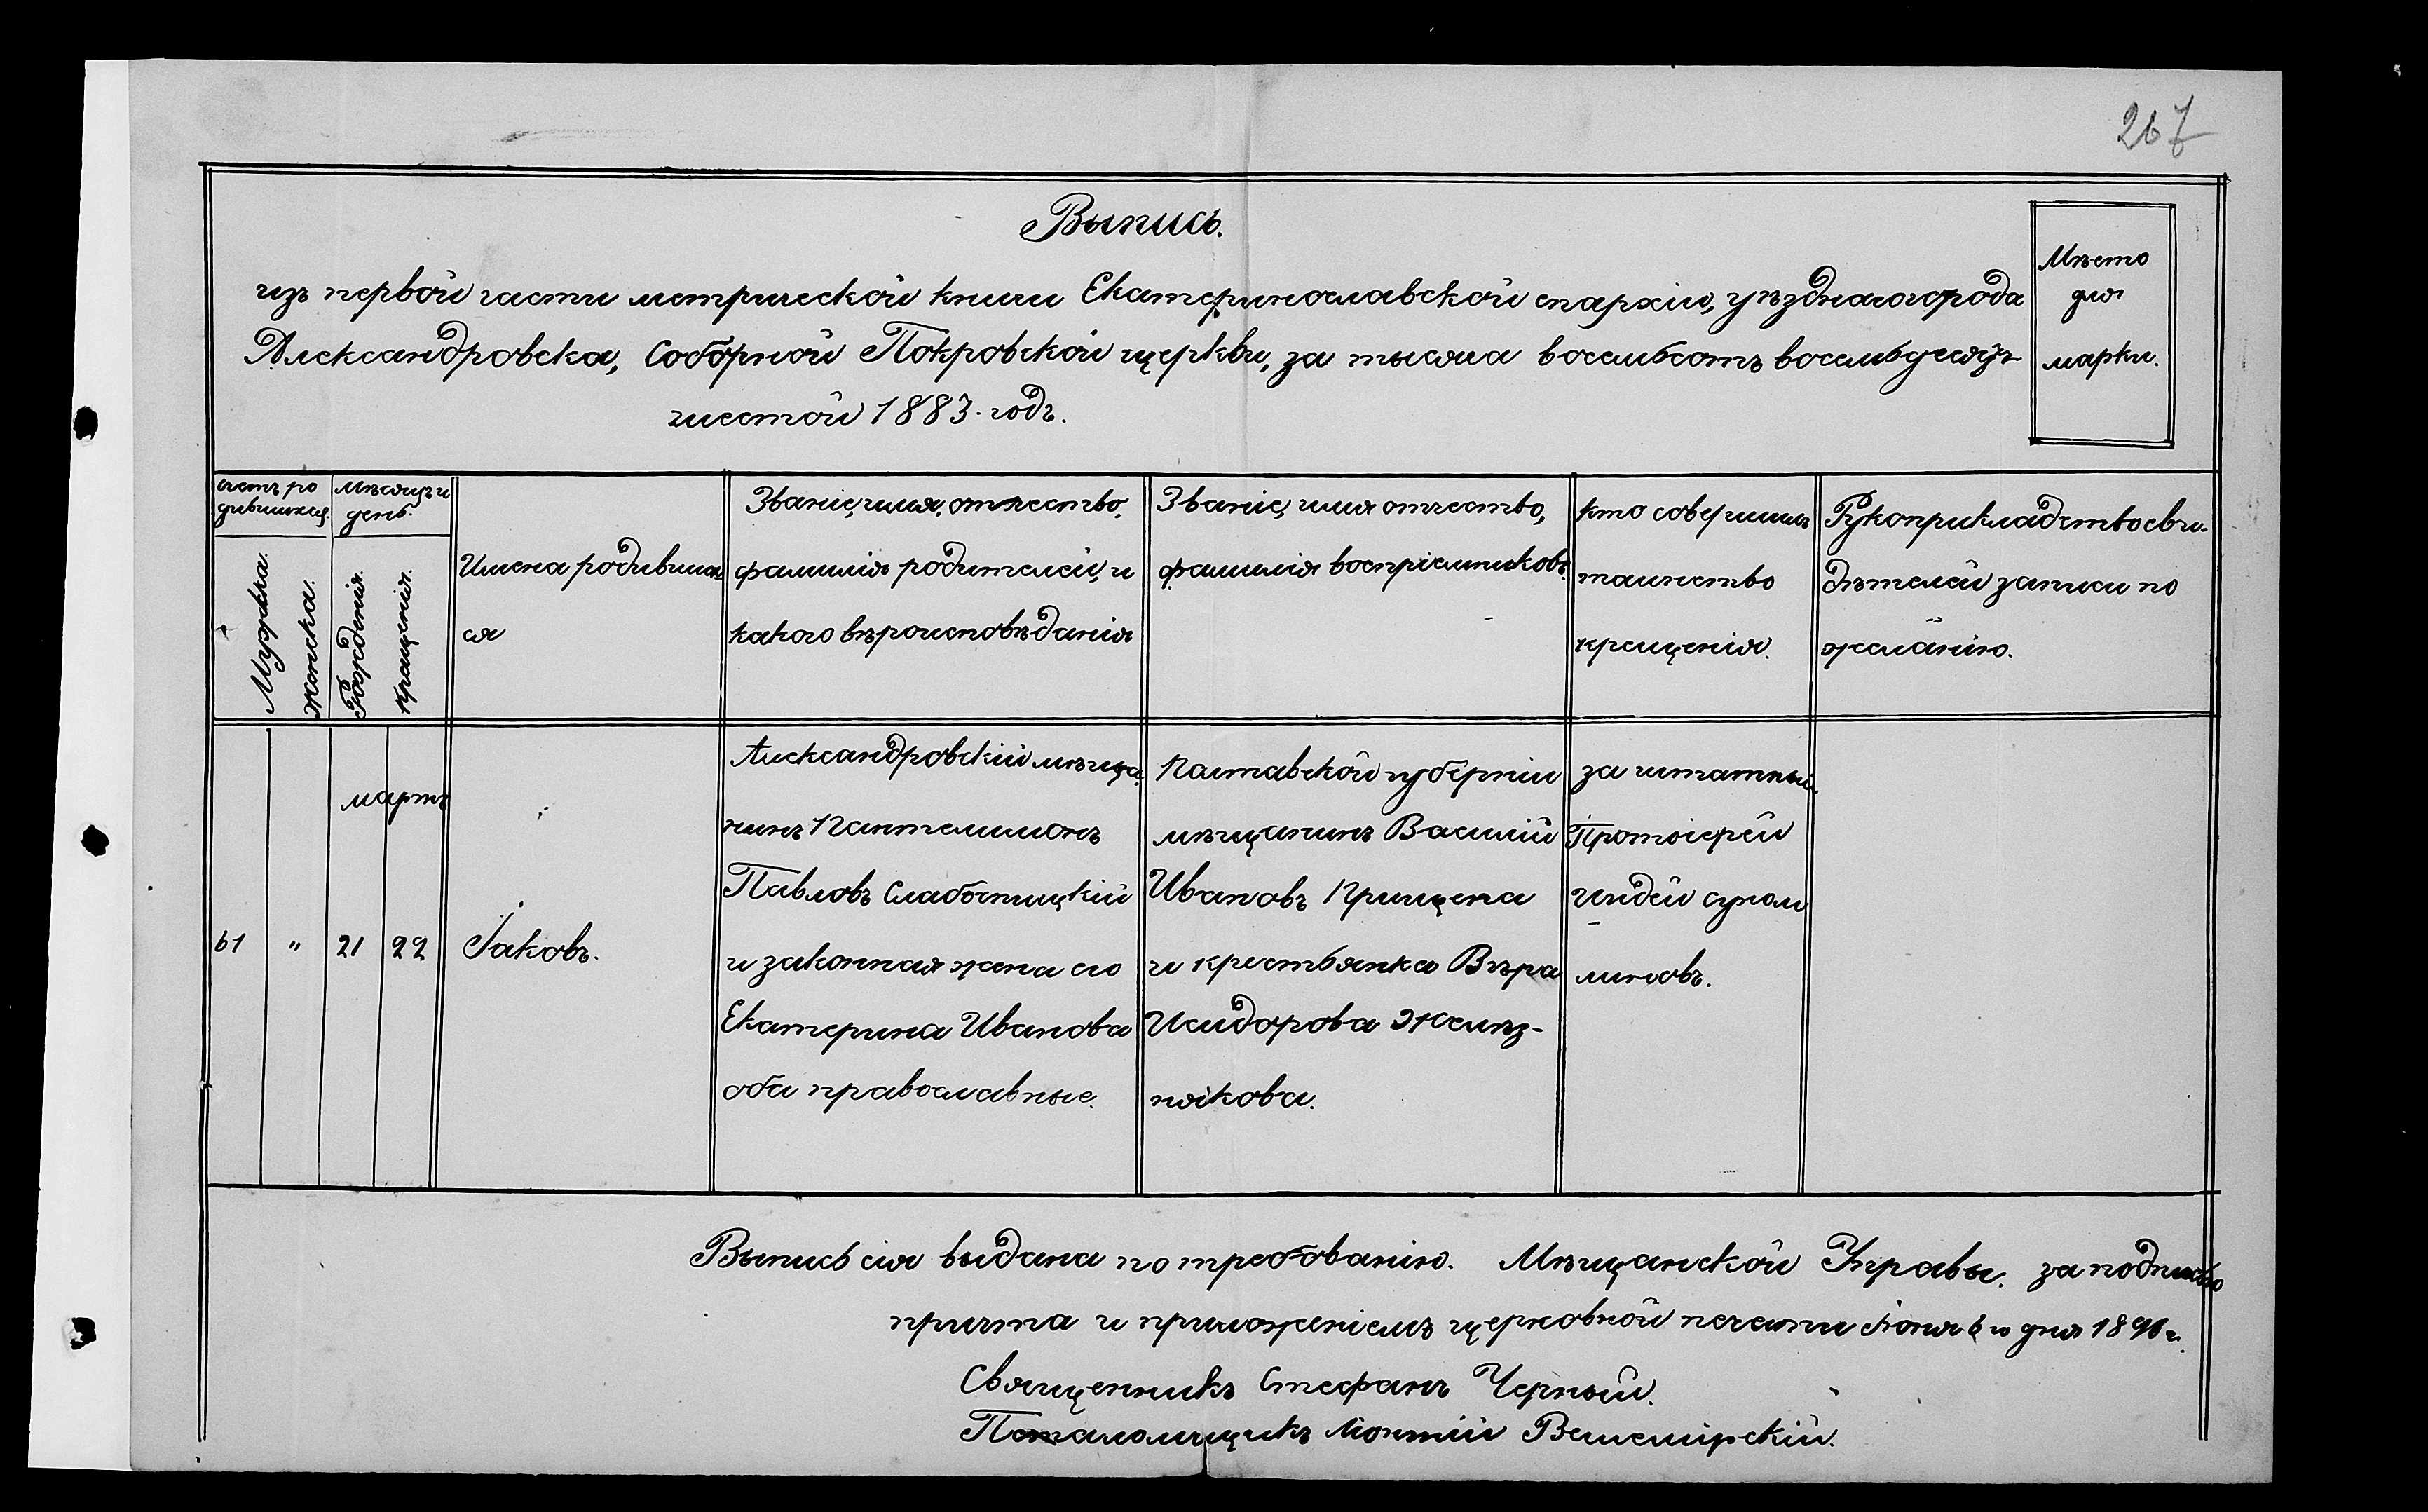 267
Выпись.
изъ первой части метрической книги Екатеринославской епархіи, уѣзднаго города
Александровска, Соборной Покровской церкви, за тысяча восемьсотъ восемьдесят
шестой 1883 годъ.
Мѣсто
для
марки.
счетъ ро
дившихся.
Мужска.
Женска.
Мѣсяцъ и
день.
Рожденія.
Крещенія.
Имена родивших
ся
Званіе, имя, отчество,
фамилія родителей, и
какого вѣроисповѣданія
Званіе, имя отчество,
фамилія воспріемниковъ.
кто совершилъ
таинство
крещенія.
Рукоприкладство сви-
дѣтелей записи по
желанію.
мартъ
61 " 21 22
Іаковъ.
Александровскій мѣща
нинъ Пантелимонъ
Павловъ Слабоницкій
и законная жена его
Екатерина Иванова
оба православные.
Полтавской губерніи
мѣщанинъ Василій
Ивановъ Прищепа
и крестьянка Вѣра
Исидорова Желѣз-
някова.
за штатный
Протоіерей
линовъ.
Выпись сія выдана по требованію. Мѣщанской Управы. за подписью
причта и приложеніемъ церковной печати Іюня 6 го дня 1896 г.
Священникъ Стефанъ Черный.
Псаломщикъ